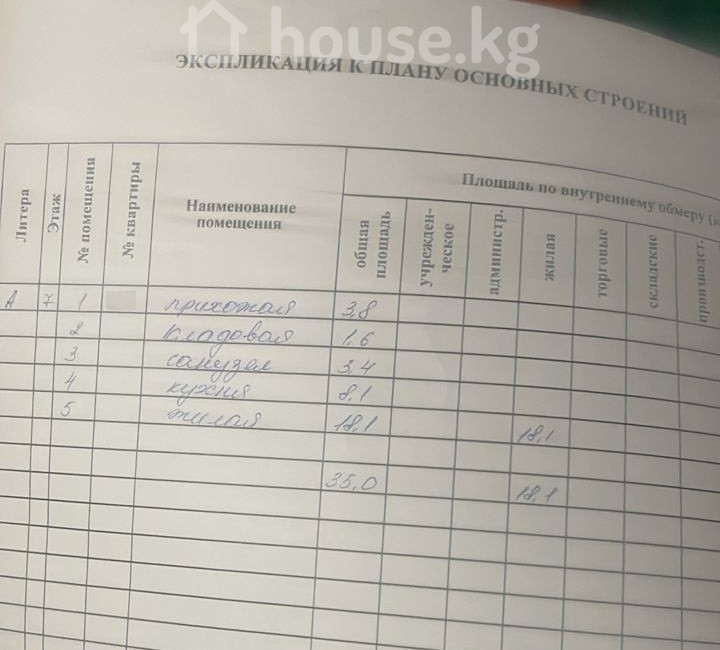 house.kg
ЭКСПЛИКАЦИЯ К ПЛАНУ ОСНОВНЫХ СТРОЕНИЙ
Литера
Этаж
№ помещения
№ квартиры
Наименование
помещения
Площадь по внутреннему обмеру
общая
площадь
учрежден-
ческое
администр.
жилая
торговые
складские
производст.
А 7 1 прихожая 3,8
2 кладовая 1,6
3 санузел 3,4
4 кухня 8,1
5 жилая 18,1 18,1
35,0 18,1